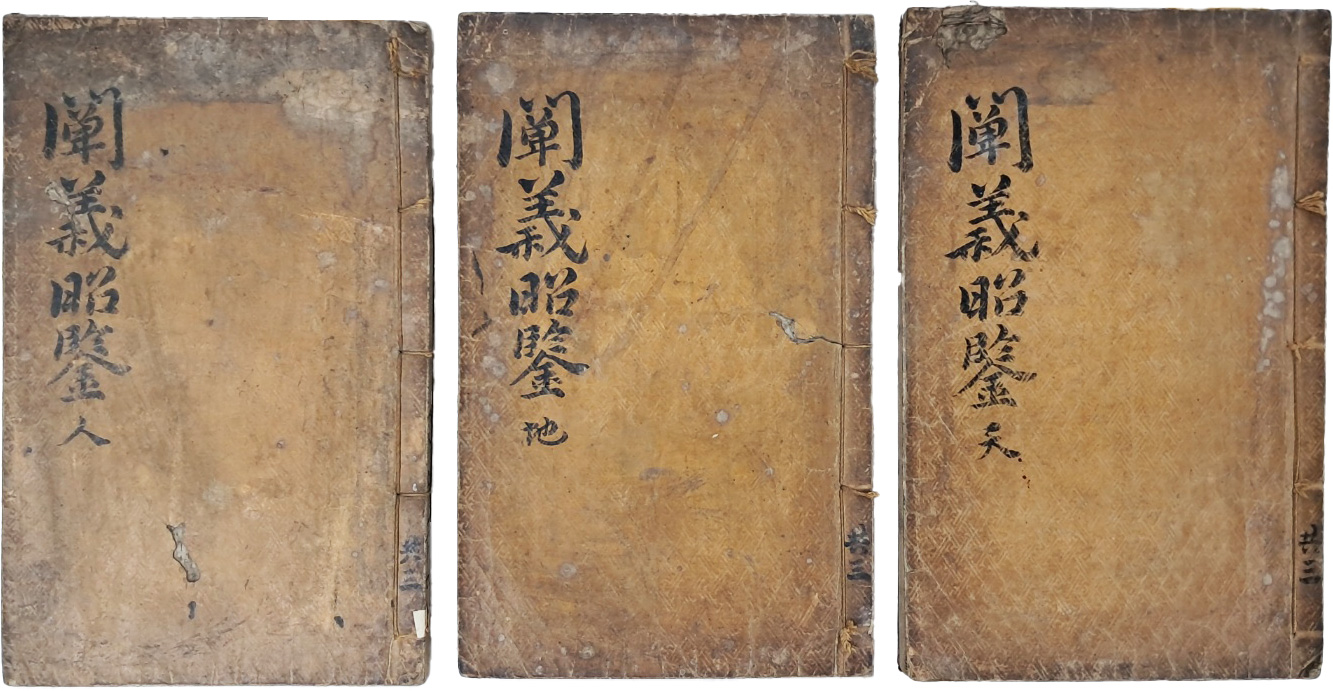 闡義昭鑒 天
共三
闡義昭鑒 地
共三
闡義昭鑒 人
共三